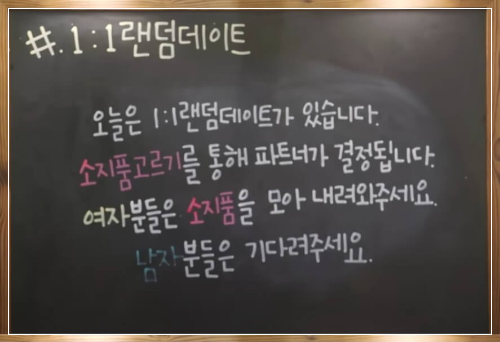 #.1:1랜덤데이트
오늘은 1:1랜덤데이트가 있습니다.
소지품고르기를 통해 파트너가 결정됩니다.
여자분들은 소지품을 모아 내려와주세요.
남자분들은 기다려주세요.